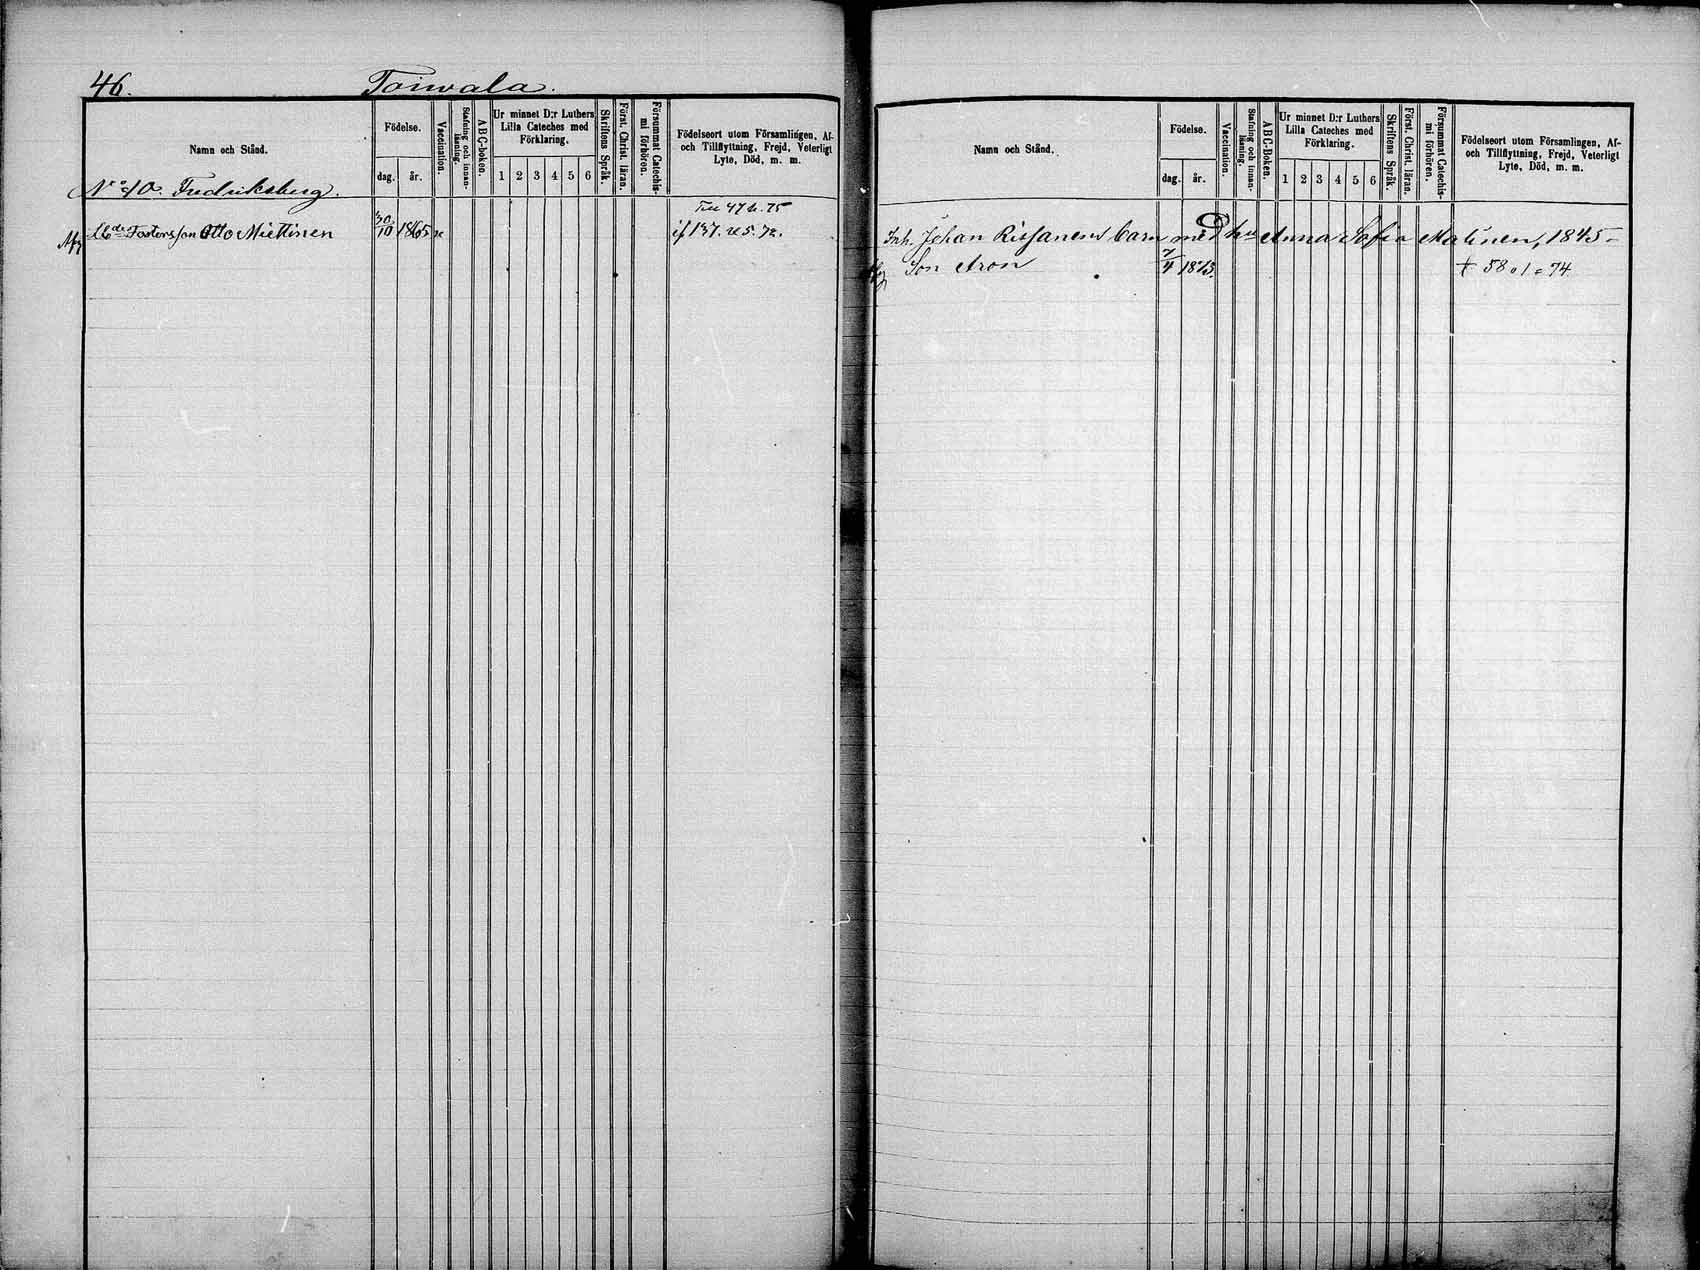 46.
Toiwala.
Namn och Stånd.
Födelse.
dag. år.
Vaccination.
Stafning och innan-
läsning.
ABC-boken.
Ur minnet D:r Luthers
Lilla Cateches med
Förklaring.
1 2 3 4 5 6
Skriftens Språk.
Först. Christ. läran.
Försummat Catechis-
mi förhören.
Födelseort utom Församlingen, Af-
och Tillflyttning, Frejd, Veterligt
Lyte, Död, m. m.
N:o 10. Fredriksberg.
Till 47 75
Fosterson Otto Miettinen 30/10 1865 if 137. 75. 72.
Namn och Stånd.
Födelse.
dag. år.
Vaccination.
Stafning och innan-
läsning.
ABC-Boken.
Ur minnet D:r Luthers
Lilla Cateches med
Förklaring.
1 2 3 4 5 6
Skriftens Språk.
Först. Christ. läran.
Försummat Catechis-
mi förhören.
Födelseort utom Församlingen, Af-
och Tillflyttning, Frejd, Veterligt
Lyte, Död, m. m.
Inh. Johan Rissanens barn med hu Anna Sofia Malinen, 1845
Son Aron 7/4 1873. † 58 1 74